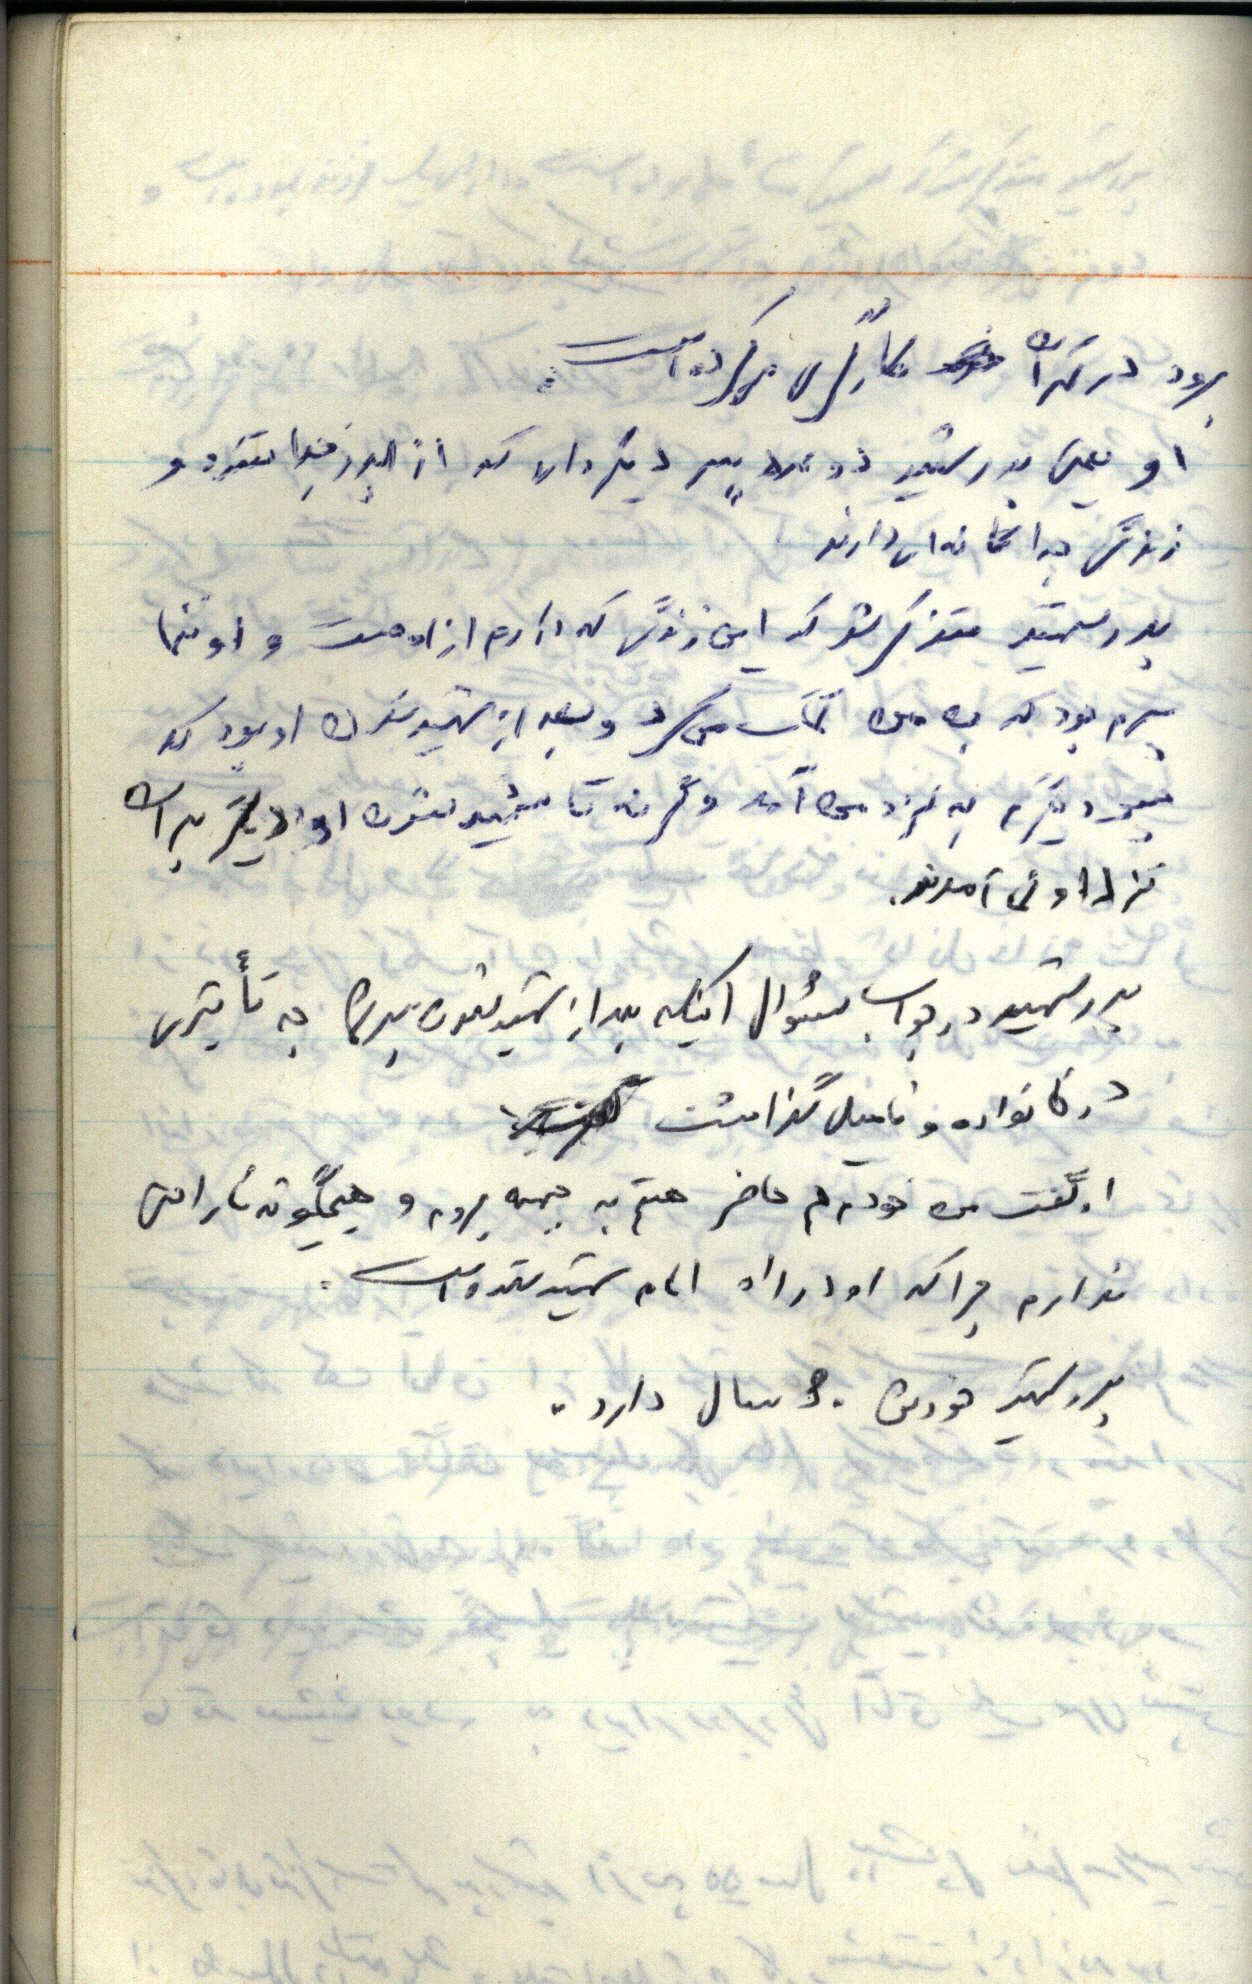 برود در تهران کارگری می‌کرده است.
او یعنی پدر شهید دو پسر دیگر دارد که از پدر جدا شدند و
زندگی جداگانه‌ای دارند
پدر شهید متذکر شد که این زندگی که دارم از اوست و او تنها
پسرم بود که به من کمک می‌کرد و بعد از شهید شدن او بود که
دیگرم به نزد من آمد وگرنه تا شهید شدن او دیگر پسران
نزد او نمی‌آمدند.
پدر شهید در جواب سئوال اینکه بعد از شهید شدن پسرتان چه تأثیری
در خانواده و فامیل گذاشت
او گفت من خودم هم حاضر هستم به جبهه بروم و هیچگونه ناراحتی
ندارم چرا که او در راه امام شهید شده است.
پدر شهید خودش ۵۰ سال دارد.